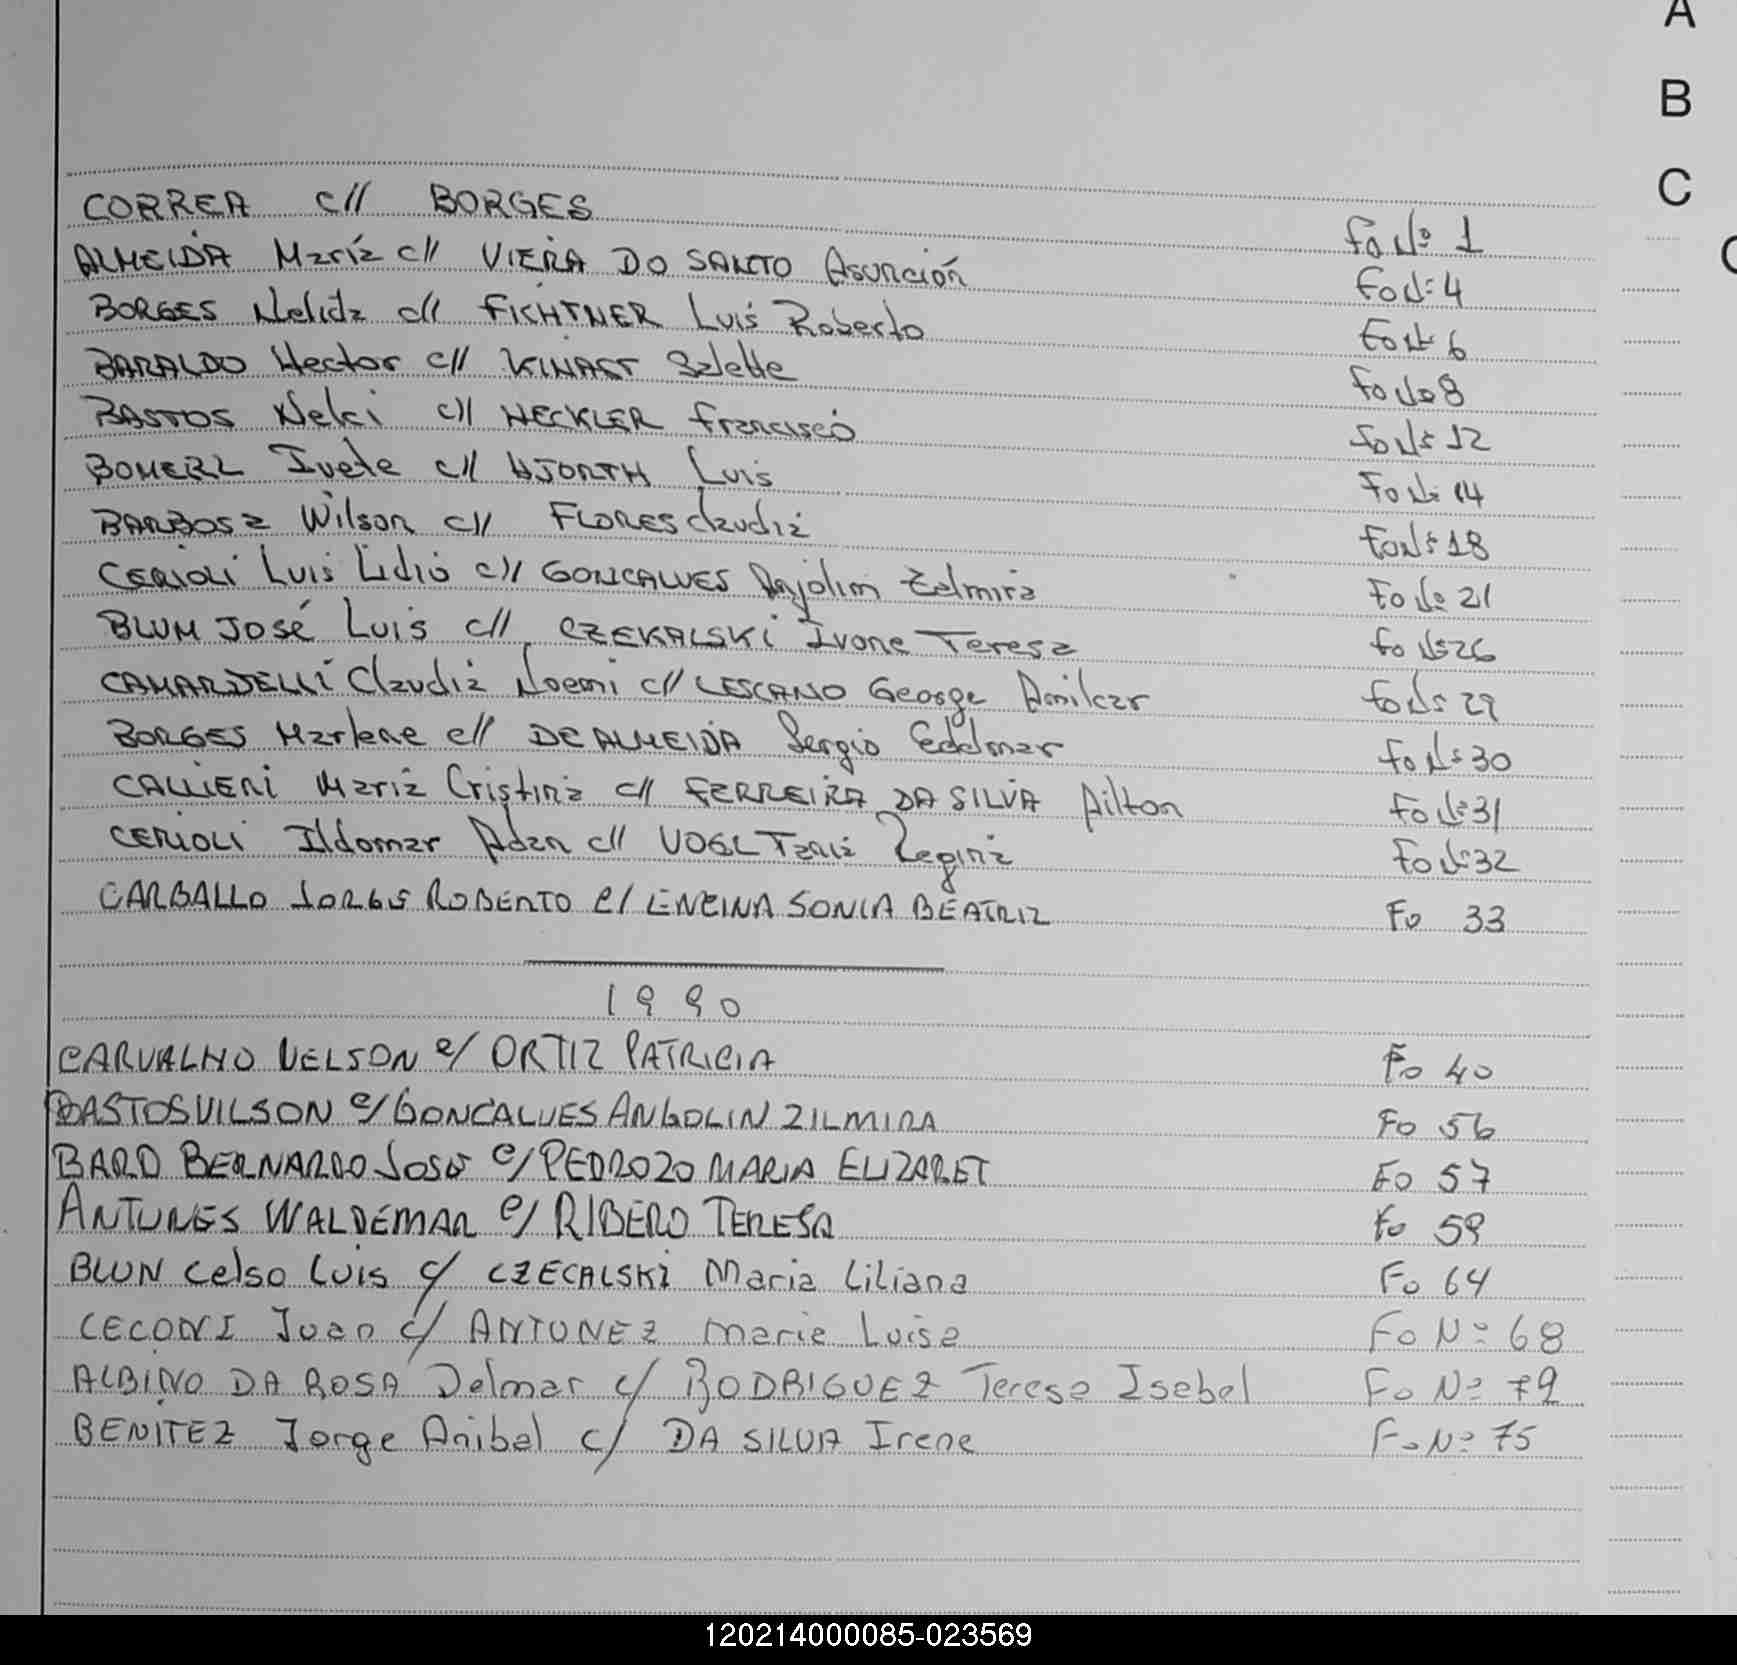 A
B
C
CORREA c// BORGES Fo Nº 1
ALMEIDA María c// VIERA DO SANTO Asunción Fo Nº 4
BORGES Nelida c// FICHTNER Luis Roberto Fo Nº 6
BARALDO Hector c// KINAST Salette Fo Nº 8
BASTOS Nelci c// HECKLER Francisco Fo Nº 12
Ivete c// HJORTH Luis Fo Nº 14
BARBOSa Wilson c// FLORES Claudia Fo Nº 18
CERIOLI Luis Lidio c// GONCALVES Anjolim Zelmira Fo Nº 21
BLUM JOSé Luis c// CZEKALSKi Ivone Teresa Fo Nº 26
CAMARDELLI Claudia Noemi c// LESCANO George Amilcar Fo Nº 29
BORGES Marlene c// DE ALMEIDA Sergio Edelmar Fo Nº 30
CALLIERI María Cristina c// FERREIRA DA SILVA Ailton Fo Nº 31
CERIOLI Ildomar Adan c// VOGL Tania Regina Fo Nº 32
CARBALLO JORGE ROBERTO c/ ENCINA SONIA BEATRIZ Fo 33
1990
CARVALHO NELSON c/ ORTIZ PATRICIA Fo 40
BASTOS VILSON c/ GONCALVES ANGOLIN ZILMIRA Fo 56
BARD BERNARDO JOSE c/ PEDROZO MARIA ELIZABET Fo 57
ANTUNES WALDEMAR c/ RIBERO TERESA Fo 59
BLUN Celso Luis c/ CZECALSKi Maria Liliana Fo 64
CECONI Juan c/ ANTUNEZ Maria Luisa Fo Nº 68
ALBINO DA ROSA Delmar c/ RODRIGUEZ Teresa Isabel Fo Nº 72
BENITEZ Jorge Anibal c/ DA SILVA Irene Fo Nº 75
120214000085-023569